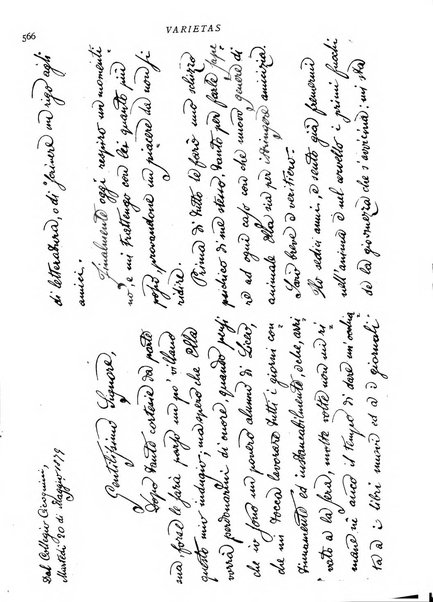 566
VARIETAS
Dal Collegio Cicognini,
Martedì 20 di Maggio 1879
Gentilissimo Signore,
Dopo tanta cortesia da parte
sua forse le sarà parso un po' villano
questo mio indugio; ma spero che Ella
vorrà perdonarmi di cuore quando pensi
che io sono un povero alunno di Liceo,
che mi tocca lavorare tutti i giorni con=
tinuamente ed instancabilmente, e che, arri
vato a la sera, molte volte non mi ri=
mane nè anco il tempo di dare un'occhia
ta a i libri nuovi ed a i giornali
di letteratura, o di scrivere un rigo agli
amici.
Finalmente oggi respiro un momenti
no, e mi trattengo con lei quanto più
posso, provandone un piacere da non si
ridire.
Prima di tutto le farò uno schizzo
pochico di me stesso, tanto per farle sape
re ad ogni caso con che nuovo genere di
animale Ella sia per istringere amicizia.
Sarò breve e veritiero.
Ho sedici anni, e sento già fremermi
nell'anima e nel cervello i primi fuochi
de la giovinezza che s'avvicina: mi sta